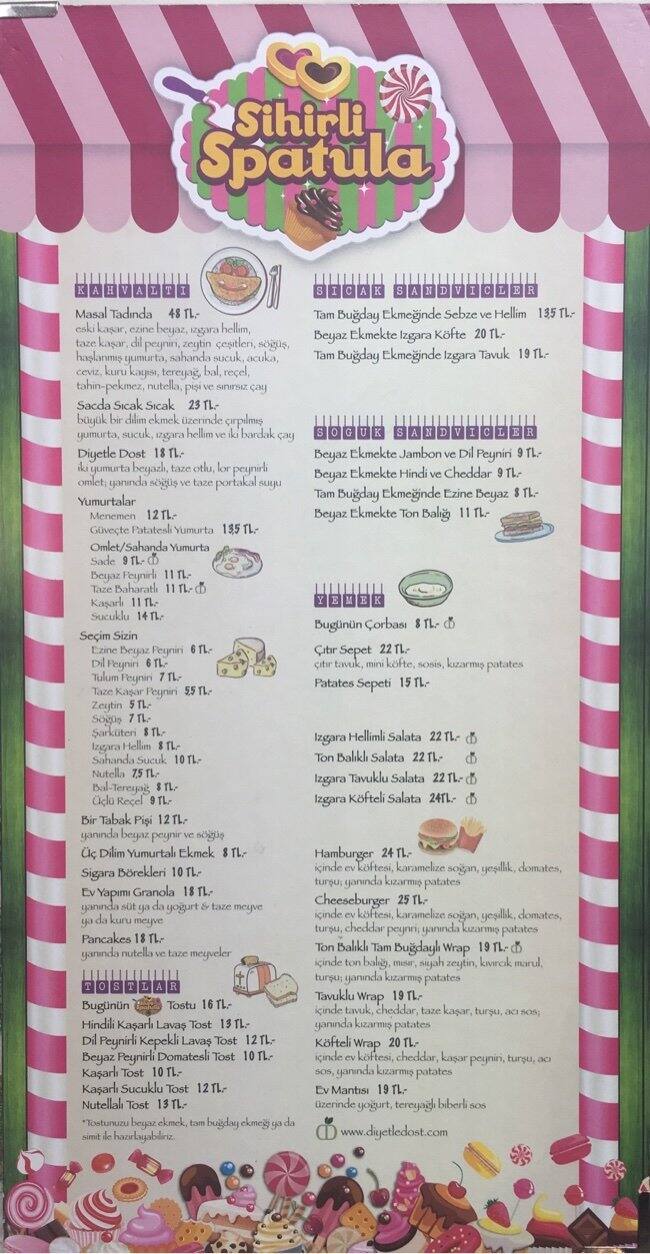 Sihirli
Spatula
KAHVALTI
Masal Tadında 48 TL.-
eski kaşar, ezine beyaz, ızgara hellim,
taze kaşar, dil peyniri, zeytin çeşitleri, söğüş,
haşlanmış yumurta, sahanda sucuk, acuka,
ceviz, kuru kayısı, tereyağ, bal, reçel,
tahin-pekmez, nutella, pişi ve sınırsız çay
Sacda Sıcak Sıcak 23 TL.-
büyük bir dilim ekmek üzerinde çırpılmış
yumurta, sucuk, ızgara hellim ve iki bardak çay
Diyetle Dost 18 TL.-
iki yumurta beyazlı, taze otlu, lor peynirli
omlet; yanında söğüş ve taze portakal suyu
Yumurtalar
Menemen 12 TL.-
Güveçte Patatesli Yumurta 13,5 TL.-
Omlet/Sahanda Yumurta
Sade 9 TL.-
Beyaz Peynirli 11 TL.-
Taze Baharatlı 11 TL.-
Kaşarlı 11 TL.-
Sucuklu 14 TL.-
Seçim Sizin
Ezine Beyaz Peyniri 6 TL.-
Dil Peyniri 6 TL.-
Tulum Peyniri 7 TL.-
Taze Kaşar Peyniri 5,5 TL.-
Zeytin 5 TL.-
Söğüş 7 TL.-
Şarküteri 8 TL.-
Izgara Hellim 8 TL.-
Sahanda Sucuk 10 TL.-
Nutella 7,5 TL.-
Bal-Tereyağ 8 TL.-
Üçlü Reçel 9 TL.-
Bir Tabak Pişi 12 TL.-
yanında beyaz peynir ve söğüş
Üç Dilim Yumurtalı Ekmek 8 TL.-
Sigara Börekleri 10 TL.-
Ev Yapımı Granola 18 TL.-
yanında süt ya da yoğurt & taze meyve
ya da kuru meyve
Pancakes 18 TL.-
yanında nutella ve taze meyveler
TOSTLAR
Bugünün Sihirli Spatula Tostu 16 TL.-
Hindili Kaşarlı Lavaş Tost 13 TL.-
Dil Peynirli Kepekli Lavaş Tost 12 TL.-
Beyaz Peynirli Domatesli Tost 10 TL.-
Kaşarlı Tost 10 TL.-
Kaşarlı Sucuklu Tost 12 TL.-
Nutellalı Tost 13 TL.-
*Tostunuzu beyaz ekmek, tam buğday ekmeği ya da
simit ile hazırlayabiliriz.
SICAK SANDVICLER
Tam Buğday Ekmeğinde Sebze ve Hellim 13,5 TL.-
Beyaz Ekmekte Izgara Köfte 20 TL.-
Tam Buğday Ekmeğinde Izgara Tavuk 19 TL.-
SOGUK SANDVICLER
Beyaz Ekmekte Jambon ve Dil Peyniri 9 TL.-
Beyaz Ekmekte Hindi ve Cheddar 9 TL.-
Tam Buğday Ekmeğinde Ezine Beyaz 8 TL.-
Beyaz Ekmekte Ton Balığı 11 TL.-
YEMEK
Bugünün Çorbası 8 TL.-
Çıtır Sepet 22 TL.-
çıtır tavuk, mini köfte, sosis, kızarmış patates
Patates Sepeti 15 TL.-
Izgara Hellimli Salata 22 TL.-
Ton Balıklı Salata 22 TL.-
Izgara Tavuklu Salata 22 TL.-
Izgara Köfteli Salata 24TL.-
Hamburger 24 TL.-
içinde ev köftesi, karamelize soğan, yeşillik, domates,
turşu; yanında kızarmış patates
Cheeseburger 25 TL.-
içinde ev köftesi, karamelize soğan, yeşillik, domates,
turşu, cheddar peyniri; yanında kızarmış patates
Ton Balıklı Tam Buğdaylı Wrap 19 TL.-
içinde ton balığı, mısır, siyah zeytin, kıvırcık marul,
turşu; yanında kızarmış patates
Tavuklu Wrap 19 TL.-
içinde tavuk, cheddar, taze kaşar, turşu, acı sos;
yanında kızarmış patates
Köfteli Wrap 20 TL.-
içinde ev köftesi, cheddar, kaşar peyniri, turşu, acı
sos, yanında kızarmış patates
Ev Mantısı 19 TL.-
üzerinde yoğurt, tereyağlı biberli sos
www.diyetledost.com